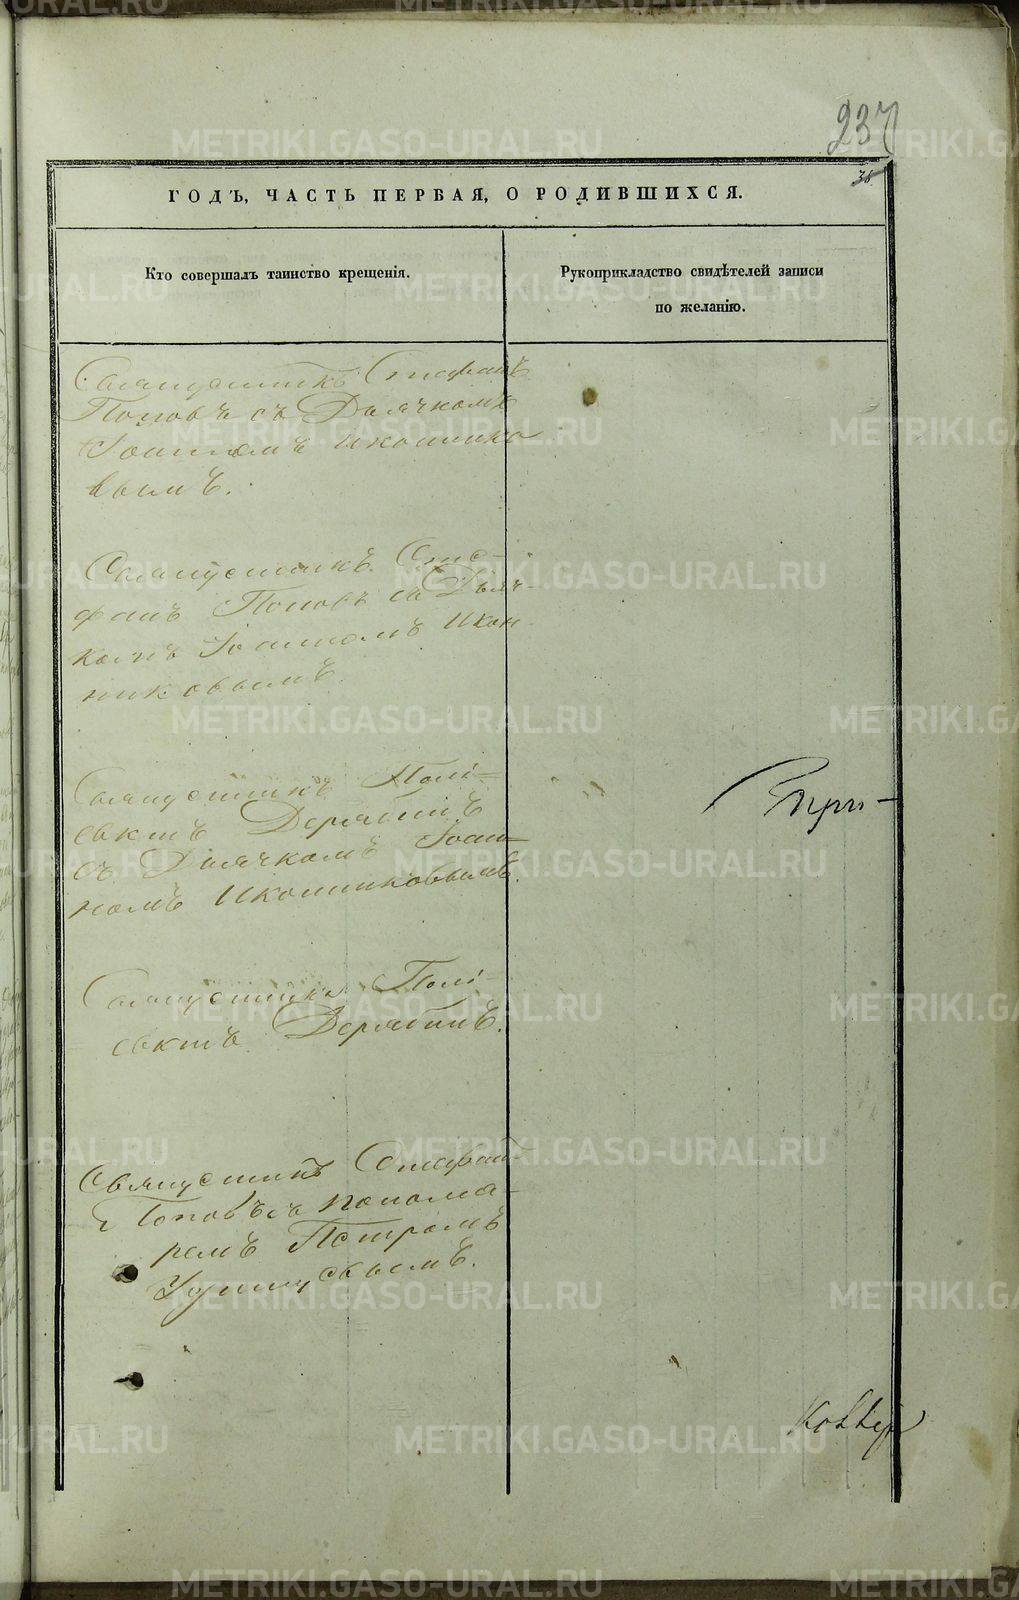 237
36
ГОДЪ, ЧАСТЬ ПЕРВАЯ, О РОДИВШИХСЯ.
Кто совершалъ таинство крещенія.
Рукоприкладство свидѣтелей записи
по желанію.
Священникъ Стефанъ
Поповъ съ Дьячкомъ
Іоанномъ Иконнико
вымъ.
Священникъ Сте-
фанъ Поповъ съ Дьяч-
комъ Іоанномъ Икон
никовымъ.
Священникъ Полі-
евктъ Дерябинъ
съ Дьячкомъ Іоан-
номъ Иконниковымъ.
Священникъ Полі-
евктъ Дерябинъ.
Священникъ Стефан-
ъ Поповъ съ понома-
ремъ Петромъ
METRIKI.GASO-URAL.RU